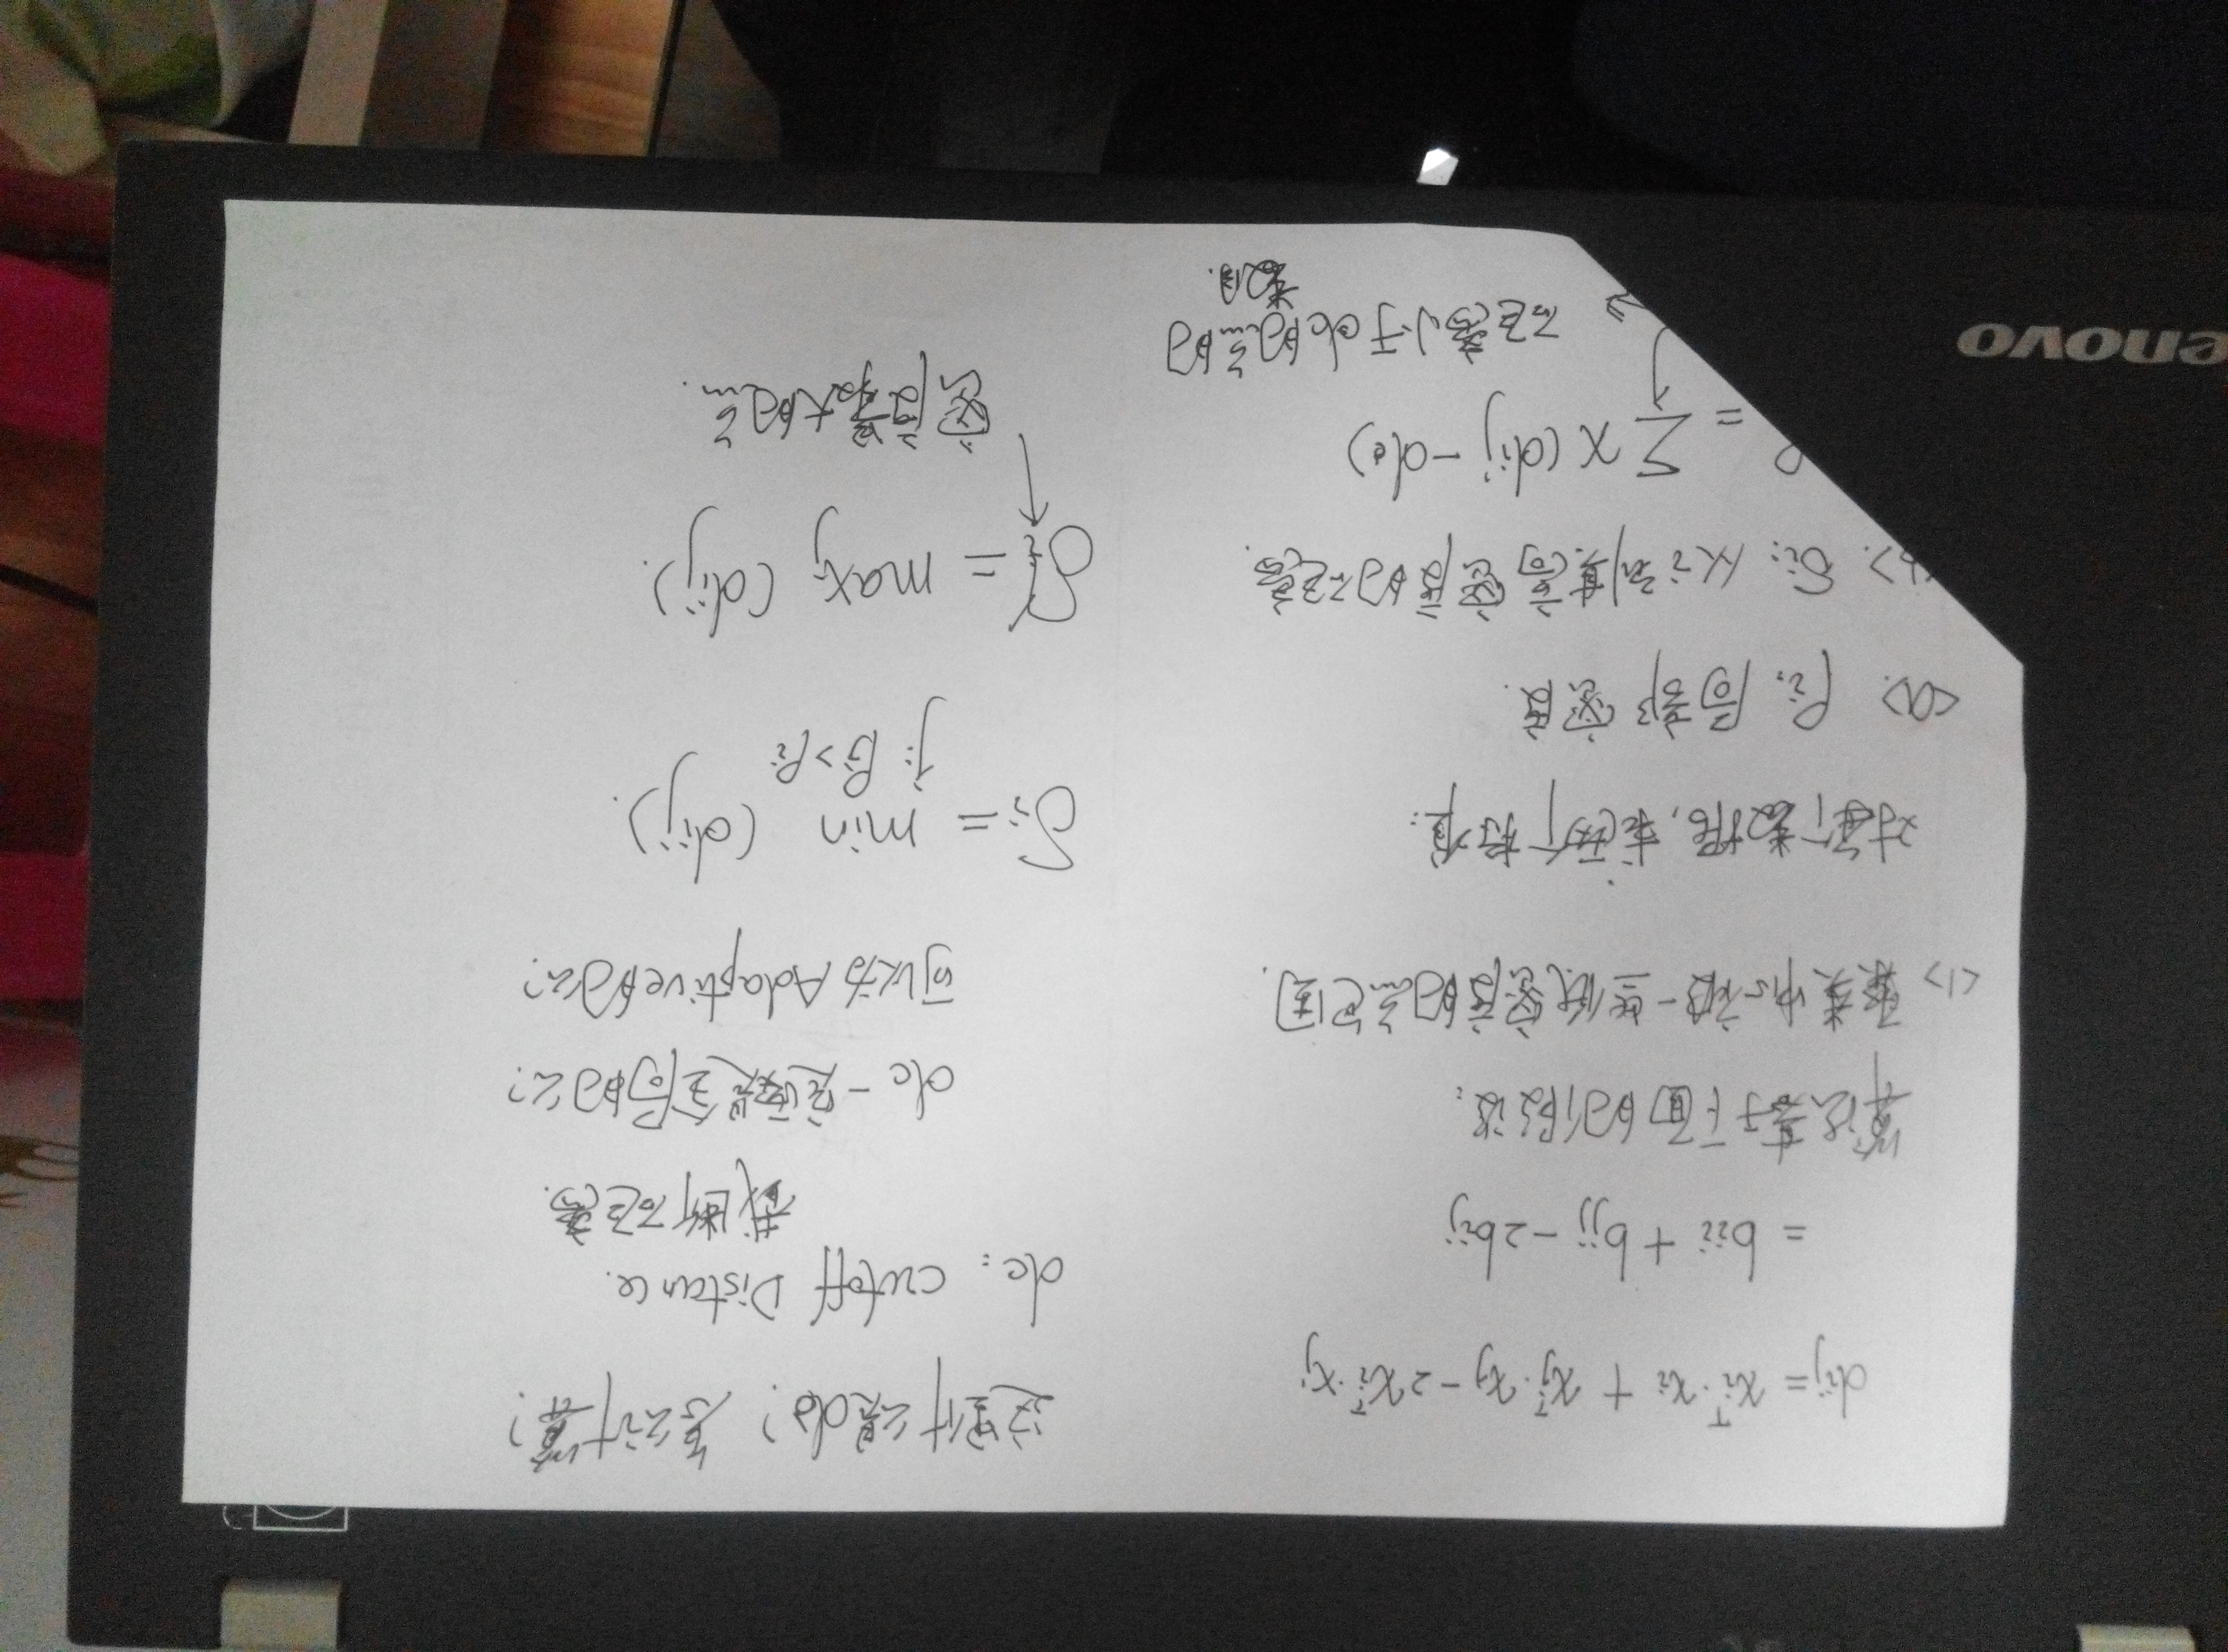 dij = xiᵀ·xi + xjᵀ·xj - 2xiᵀ·xj
= bii + bjj - 2bij
算法基于下面的假设:
<1> 聚类中心被一些低密度的点包围
对每个数据, 求两个标准:
<a>. ρi: 局部密度.
<b>. δi: 从i到其高密度的距离.
ρ = Σj χ(dij - dc)
距离小于dc的点的
数目.
这里什么是dc? 怎么计算?
dc: cutoff Distance.
截断距离.
dc一定要是全局的么?
可以为Adaptive的么?
δi = min (dij).
j: ρj > ρi
δi = maxj (dij).
密度最大的点.
enovo